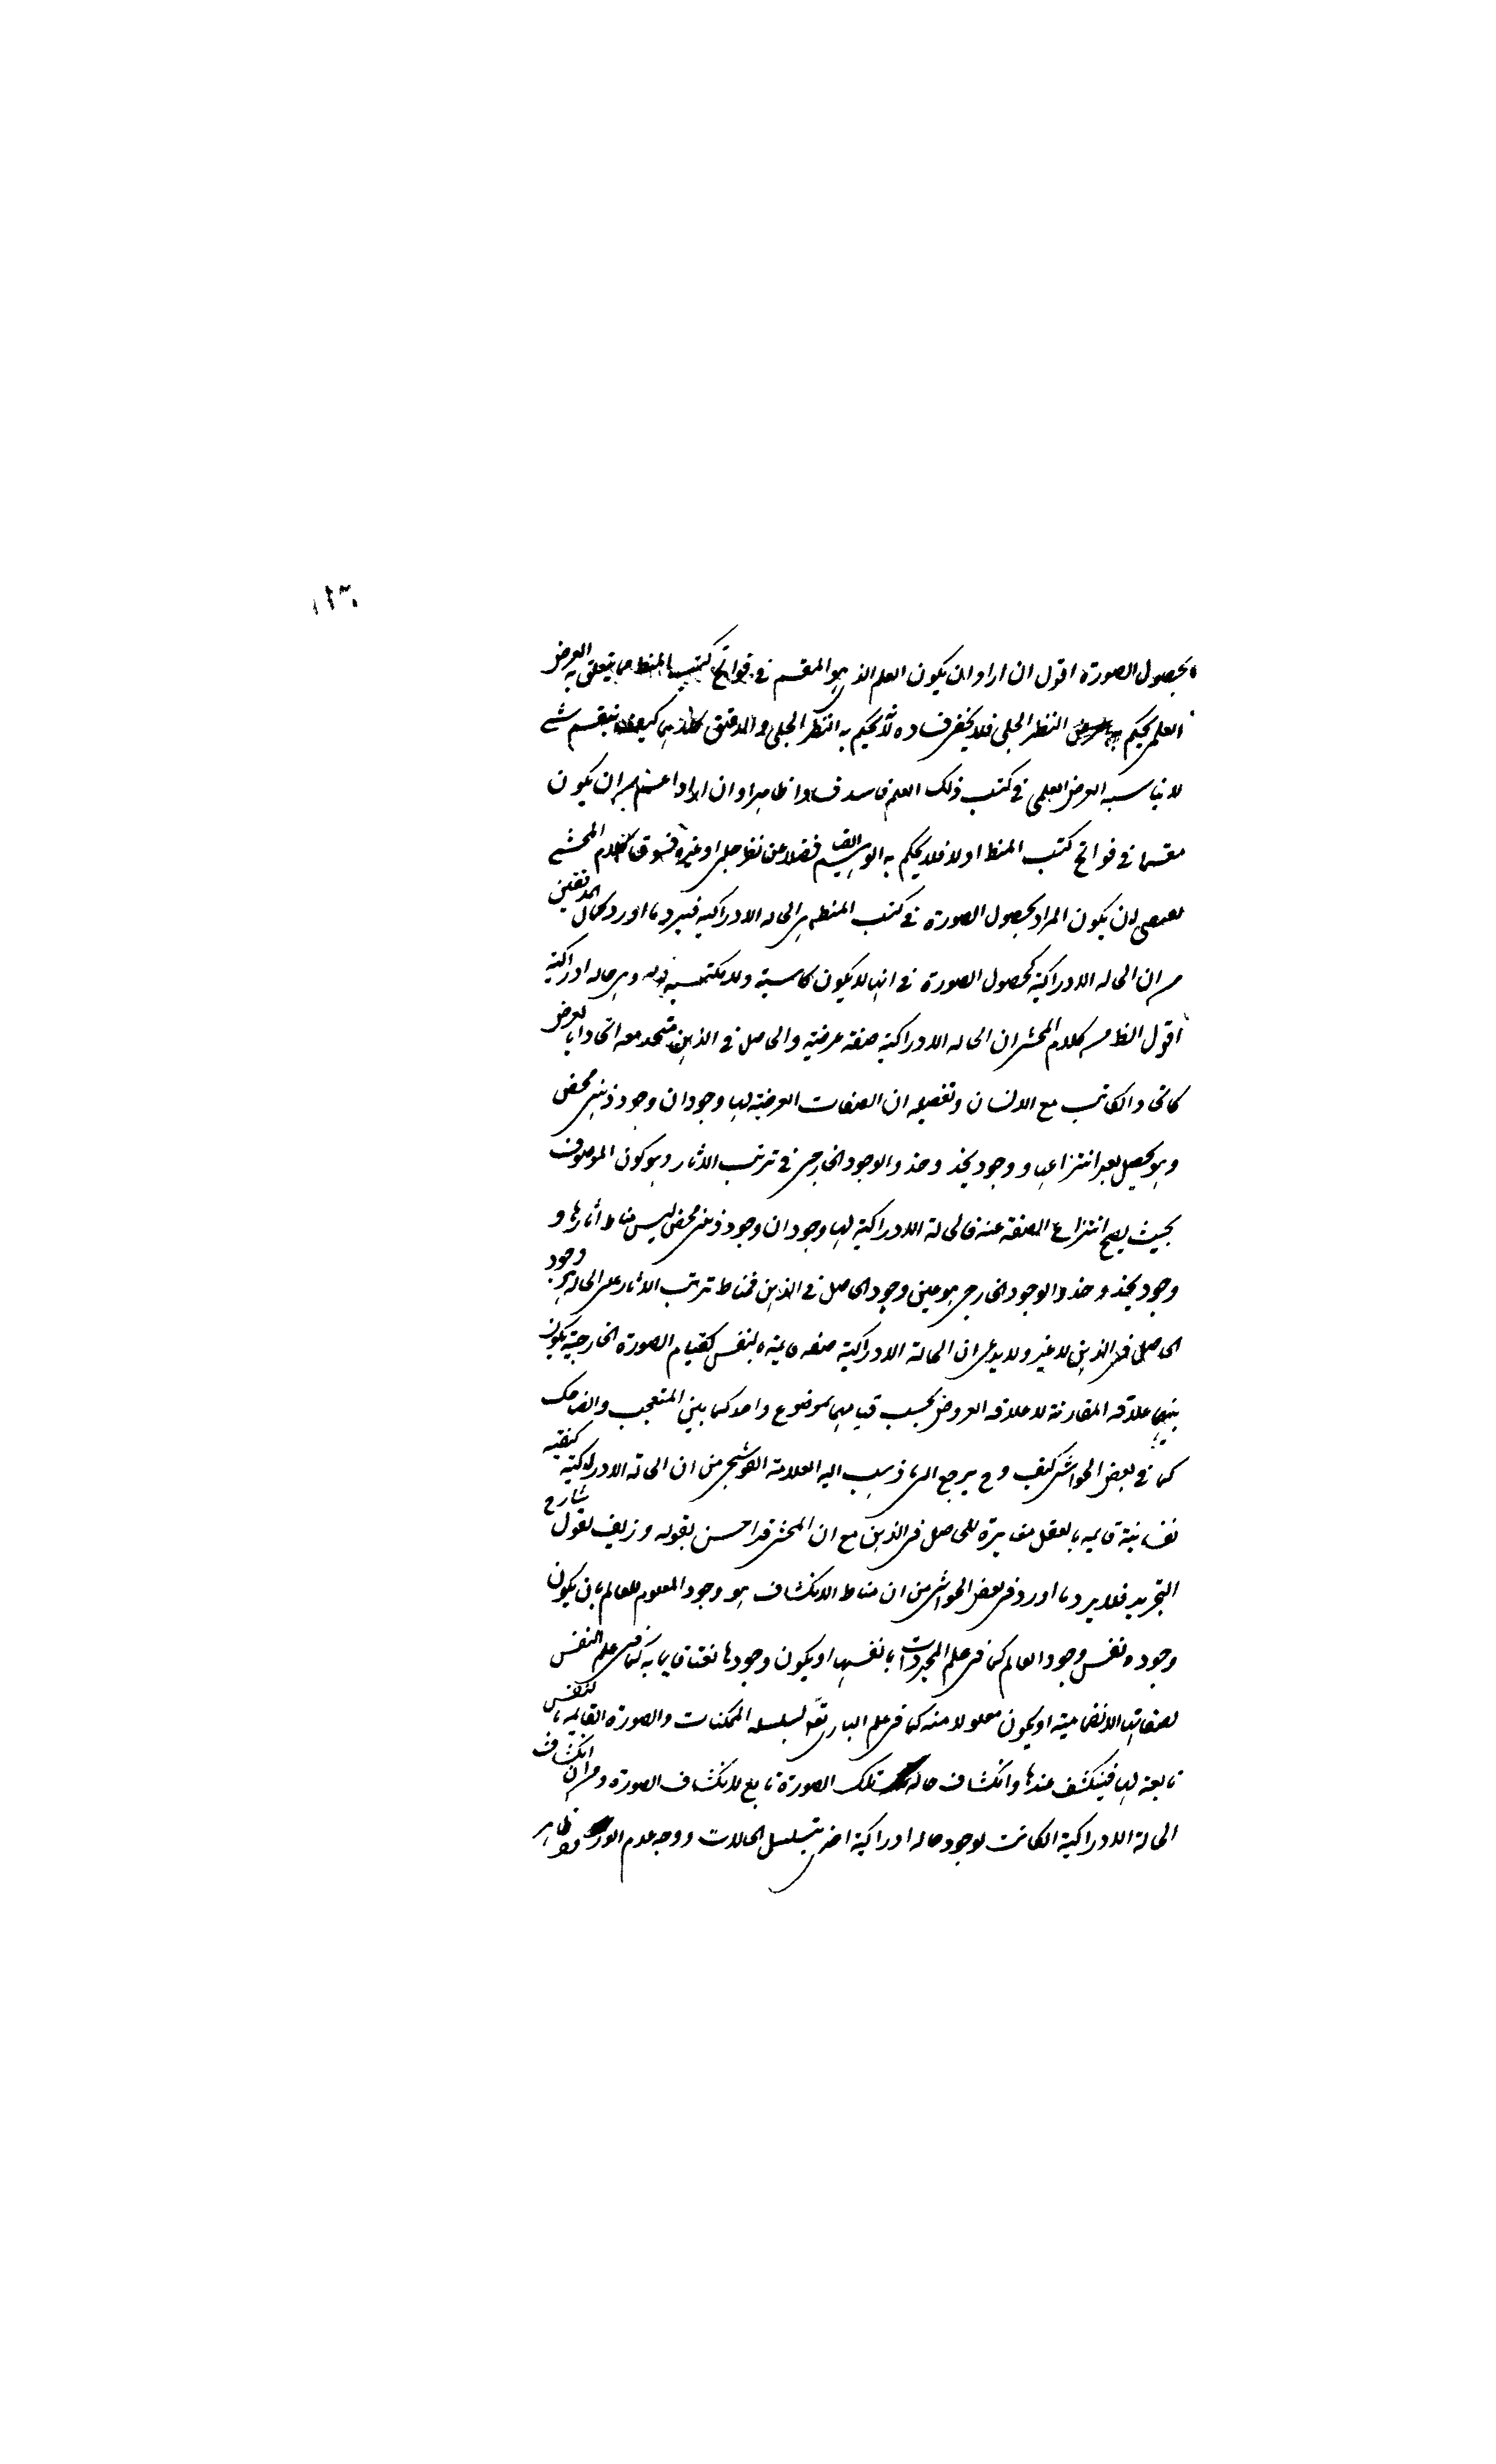 ١٢٣
بحصول الصورة اقول ان اراد ان يكون العلم الذى هو المقسم فى فواتح كتب المنط مما يتعلق به الغرض
العلمى يحكم به النظر الجلى فلا يخفى فساده لا يحكم به النظر الجلى والدقيق كيف و تقسيم شئ
لا يناسبه الغرض العلمى فى كتب ذلك العلم فاسد فسادا ظاهرا وان اراد اعنى ان يكون
مقسما فى فواتح كتب المنط اولا فلا يحكم به الوهم السقيم فضلا عن نظر جلى او غيره فسوق كلام المحشى
يقتضى لان يكون المراد بحصول الصورة فى كتب المنط هى الحاله الادراكيه فيرد ما اورد كمال المدققين
من ان الحاله الادراكية كحصول الصورة فى انها لا يكون كاسبة ولا مكتسبة وهى حاله ادراكية
اقول الظ من كلام المحشى ان الحاله الادراكية صفة عرضية والحاصل فى الذهن متحد معه اتحادا بالعرض
كاتحاد الكاتب مع الانسان وتفصيله ان الصفات العرضية لها وجودان وجود ذهنى محض
وهو يحصل بعد انتزاعها و وجود يحذو حذو الوجود الخارجى فى ترتب الاثار وهو كون الموصوف
بحيث يصح انتزاع الصفة عنه فالحالة الادراكية لها وجودان وجود ذهنى محض ليس مناط اثارها و
وجود يحذو حذو الوجود الخارجى هو عين وجود الحاصل فى الذهن فمناط ترتب الاثار على الحاله هو وجود
الحاصل فى الذهن لا غير ولا يدعى ان الحالة الادراكية صفه قايمة بالنفس كقيام الصورة الخارجية يكون
بينها علاقه المقارنة لا علاقه العروض بحسب قيامهما بموضوع واحد كما بين المتعجب والضاحك
كما فى بعض الحواشى كيف وح يرجع الى ما ذهب اليه العلامة القوشجى من ان الحالة الادراكية كيفيه
نفسانية قايمه بالعقل مغايرة للحاصل فى الذهن مع ان المحشى قد احسن بقوله و زيف لقول شارح
التجريد فلا يرد ما اورد فى بعض الحواشى من ان مناط الانكشاف هو وجود المعلوم للعالم بان يكون
وجوده نفس وجود العالم كما فى علم المجردات بانفسها او يكون وجودها نعتا قايما به كما فى علم النفس
لصفاتها الانضمامية او يكون معلولا منه كما فى علم البارى تعو لسلسله الممكنات والصورة القايمه بالنفس
تابعة لها فينكشف عندها وانكشاف حاله تلك الصورة تابع لانكشاف الصورة و من ان انكشاف
الحالة الادراكية ان كانت لوجود حاله ادراكية اخرى يتسلسل الحالات ووجه عدم الورود ظاهر